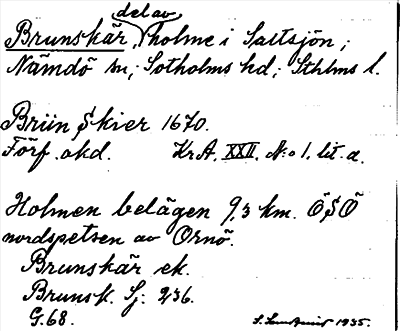 del av
Brunskär, holme i Saltsjön;
Nämdö sn; Sotholms hd; Sthlms l.
Brün Skier 1670.
Förf. okd. Kr.A. XXII. N:o 1. lit. a.
Holmen belägen 9,3 km. ÖSÖ
nordspetsen av Ornö.
Brunskär ek.
Brunsk. Sj: 236.
G.68. 1935.